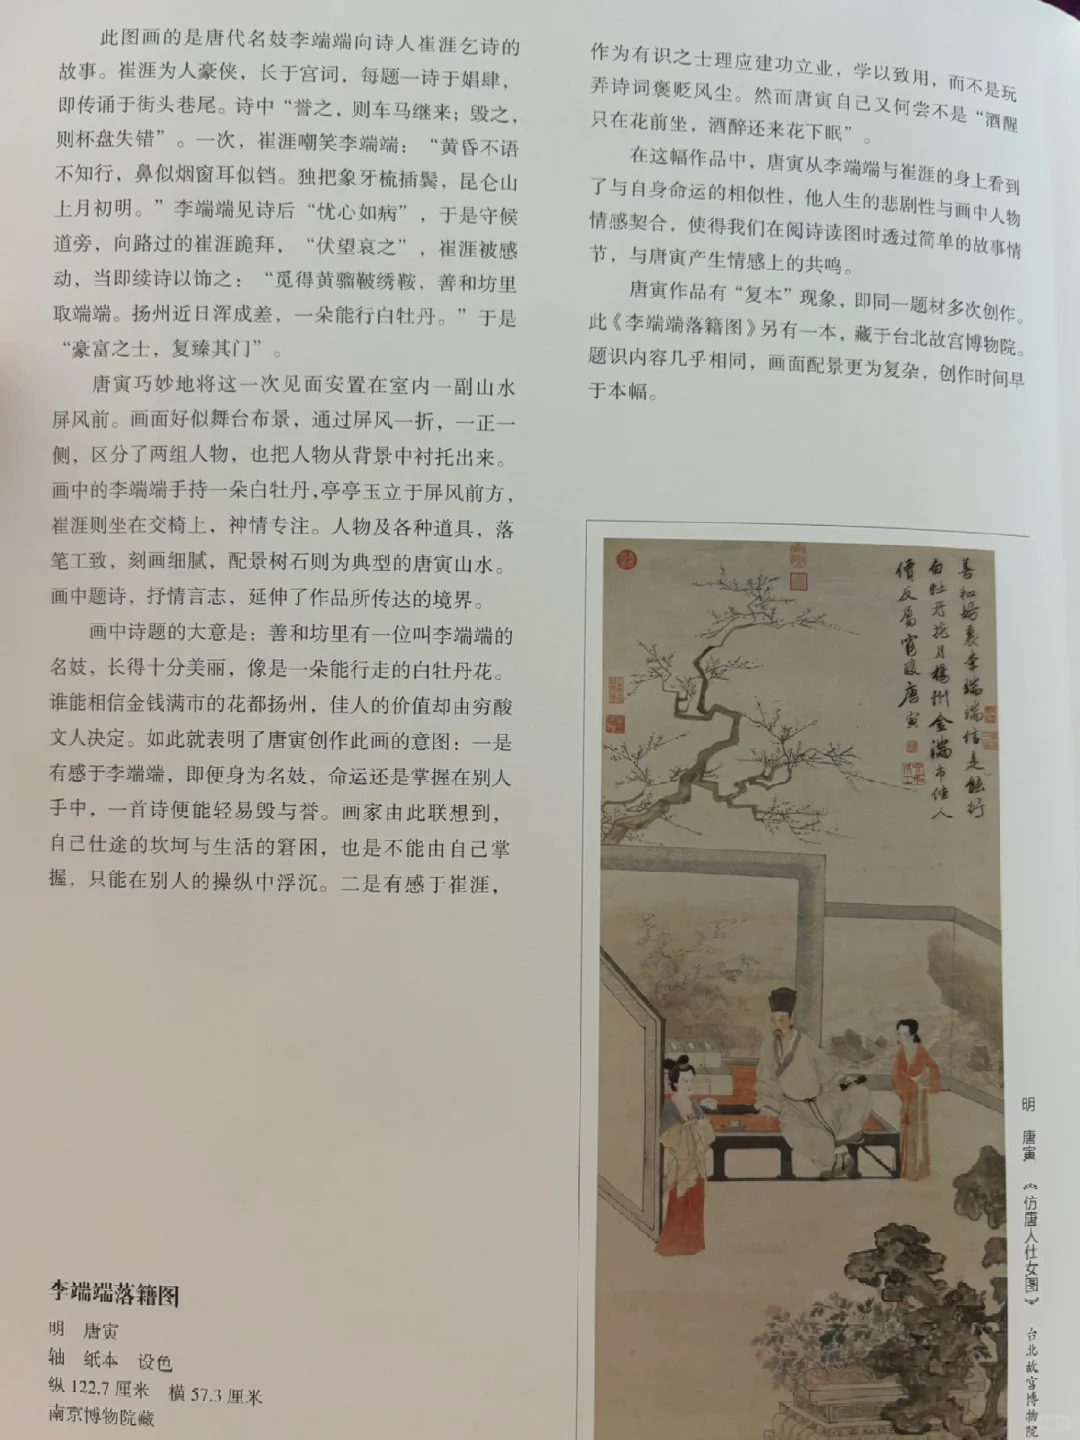 此图画的是唐代名妓李端端向诗人崔涯乞诗的
故事。崔涯为人豪侠，长于宫词，每题一诗于娼肆，
即传诵于街头巷尾。诗中“誉之，则车马继来；毁之，
则杯盘失错”。一次，崔涯嘲笑李端端：“黄昏不语
不知行，鼻似烟窗耳似铛。独把象牙梳插鬓，昆仑山
上月初明。”李端端见诗后“忧心如病”，于是守候
道旁，向路过的崔涯跪拜，“伏望哀之”，崔涯被感
动，当即续诗以饰之：“觅得黄骝鞁绣鞍，善和坊里
取端端。扬州近日浑成差，一朵能行白牡丹。”于是
“豪富之士，复臻其门”。
唐寅巧妙地将这一次见面安置在室内一副山水
屏风前。画面好似舞台布景，通过屏风一折，一正一
侧，区分了两组人物，也把人物从背景中衬托出来。
画中的李端端手持一朵白牡丹，亭亭玉立于屏风前方，
崔涯则坐在交椅上，神情专注。人物及各种道具，落
笔工致，刻画细腻，配景树石则为典型的唐寅山水。
画中题诗，抒情言志，延伸了作品所传达的境界。
画中诗题的大意是：善和坊里有一位叫李端端的
名妓，长得十分美丽，像是一朵能行走的白牡丹花。
谁能相信金钱满市的花都扬州，佳人的价值却由穷酸
文人决定。如此就表明了唐寅创作此画的意图：一是
有感于李端端，即便身为名妓，命运还是掌握在别人
手中，一首诗便能轻易毁与誉。画家由此联想到，
自己仕途的坎坷与生活的窘困，也是不能由自己掌
握，只能在别人的操纵中浮沉。二是有感于崔涯，
作为有识之士理应建功立业，学以致用，而不是玩
弄诗词褒贬风尘。然而唐寅自己又何尝不是“酒醒
只在花前坐，酒醉还来花下眠”。
在这幅作品中，唐寅从李端端与崔涯的身上看到
了与自身命运的相似性，他人生的悲剧性与画中人物
情感契合，使得我们在阅诗读图时透过简单的故事情
节，与唐寅产生情感上的共鸣。
唐寅作品有“复本”现象，即同一题材多次创作。
此《李端端落籍图》另有一本，藏于台北故宫博物院。
题识内容几乎相同，画面配景更为复杂，创作时间早
于本幅。
善和坊裏李端端信是能行
白牡丹花月楊州金滿市佳人
價反屬窮酸唐寅
明 唐寅 《仿唐人仕女图》 台北故宫博物院
李端端落籍图
明 唐寅
轴 纸本 设色
纵 122.7 厘米 横 57.3 厘米
南京博物院藏